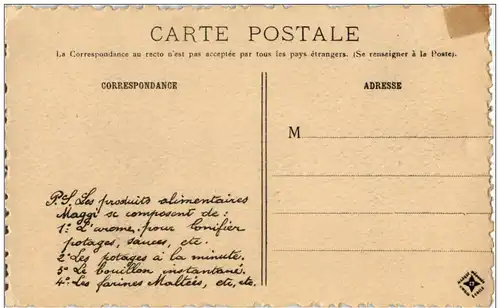 CARTE POSTALE
La Correspondance au recto n'est pas acceptée par tous les pays étrangers. (Se renseigner à la Poste).
CORRESPONDANCE
ADRESSE
M
P.S. Les produits alimentaires
Maggi se composent de :
1º L'arome, pour bonifier
potages, sauces, etc.
2º Les potages à la minute.
3º Le bouillon instantané.
4º Les farines Maltées, etc, etc.